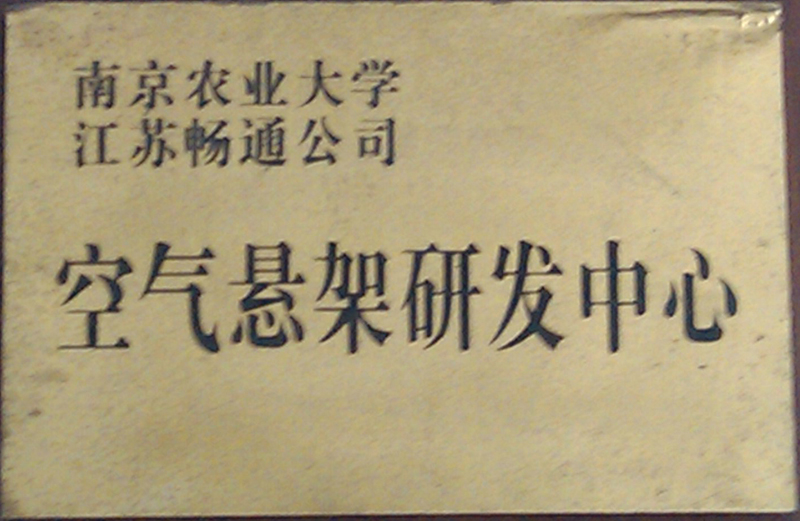 南京农业大学
江苏畅通公司
空气悬架研发中心